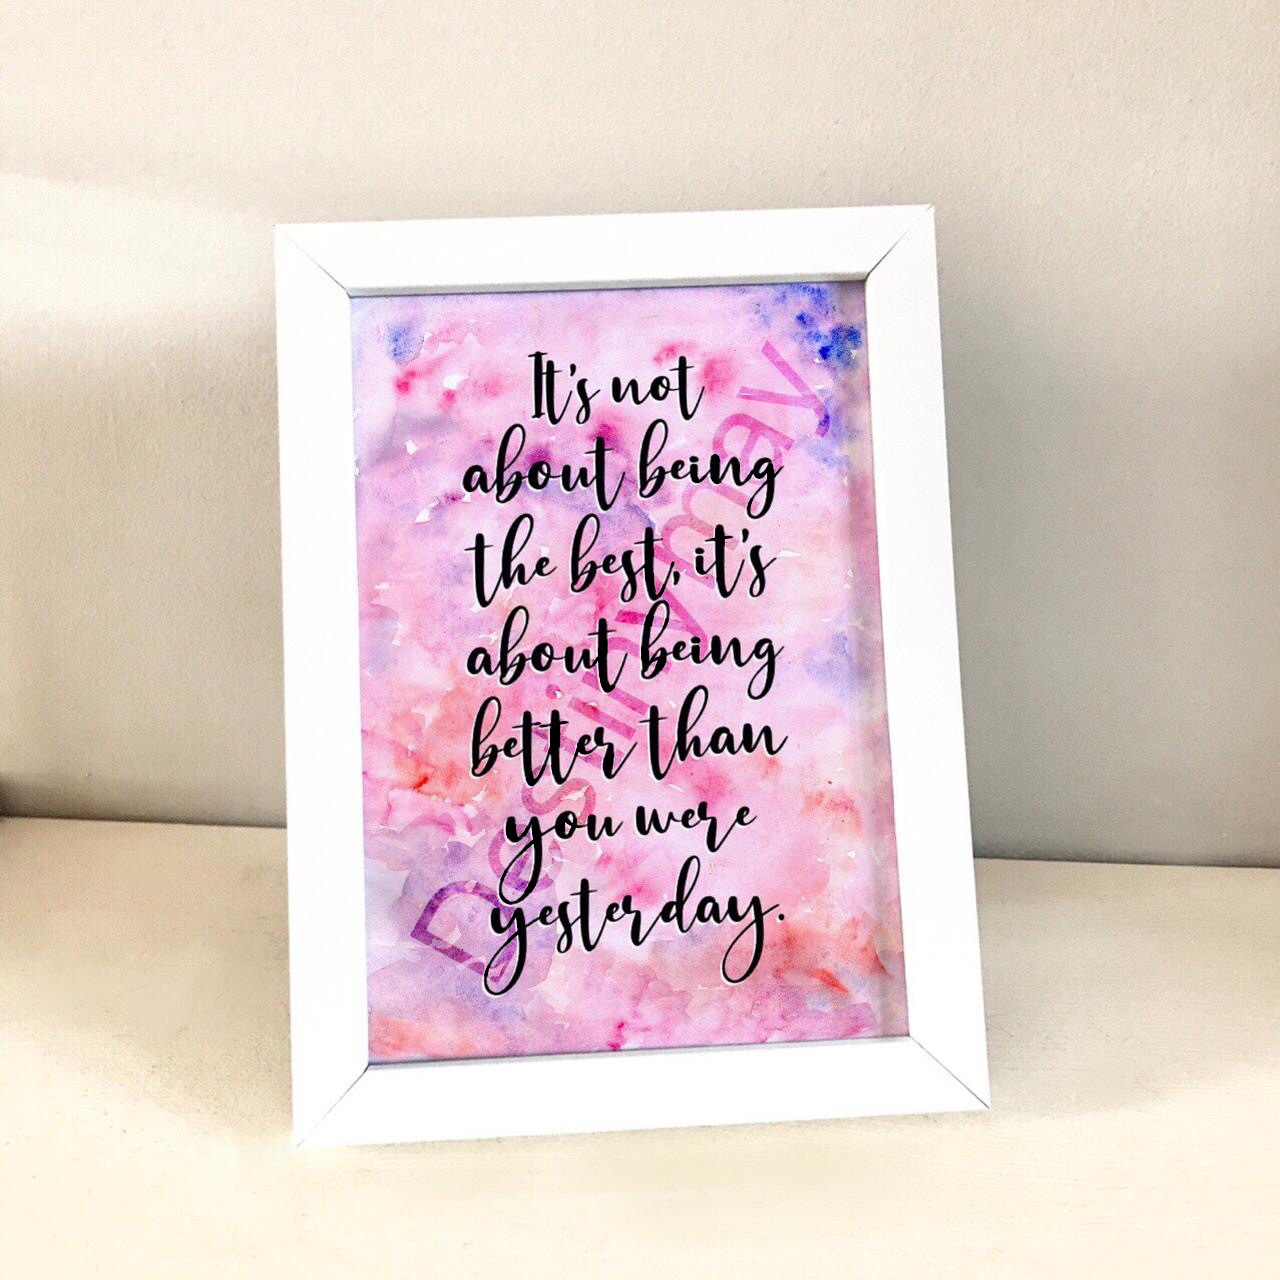 It's not
about being
the best, it's
about being
better than
you were
yesterday.
Destinymay